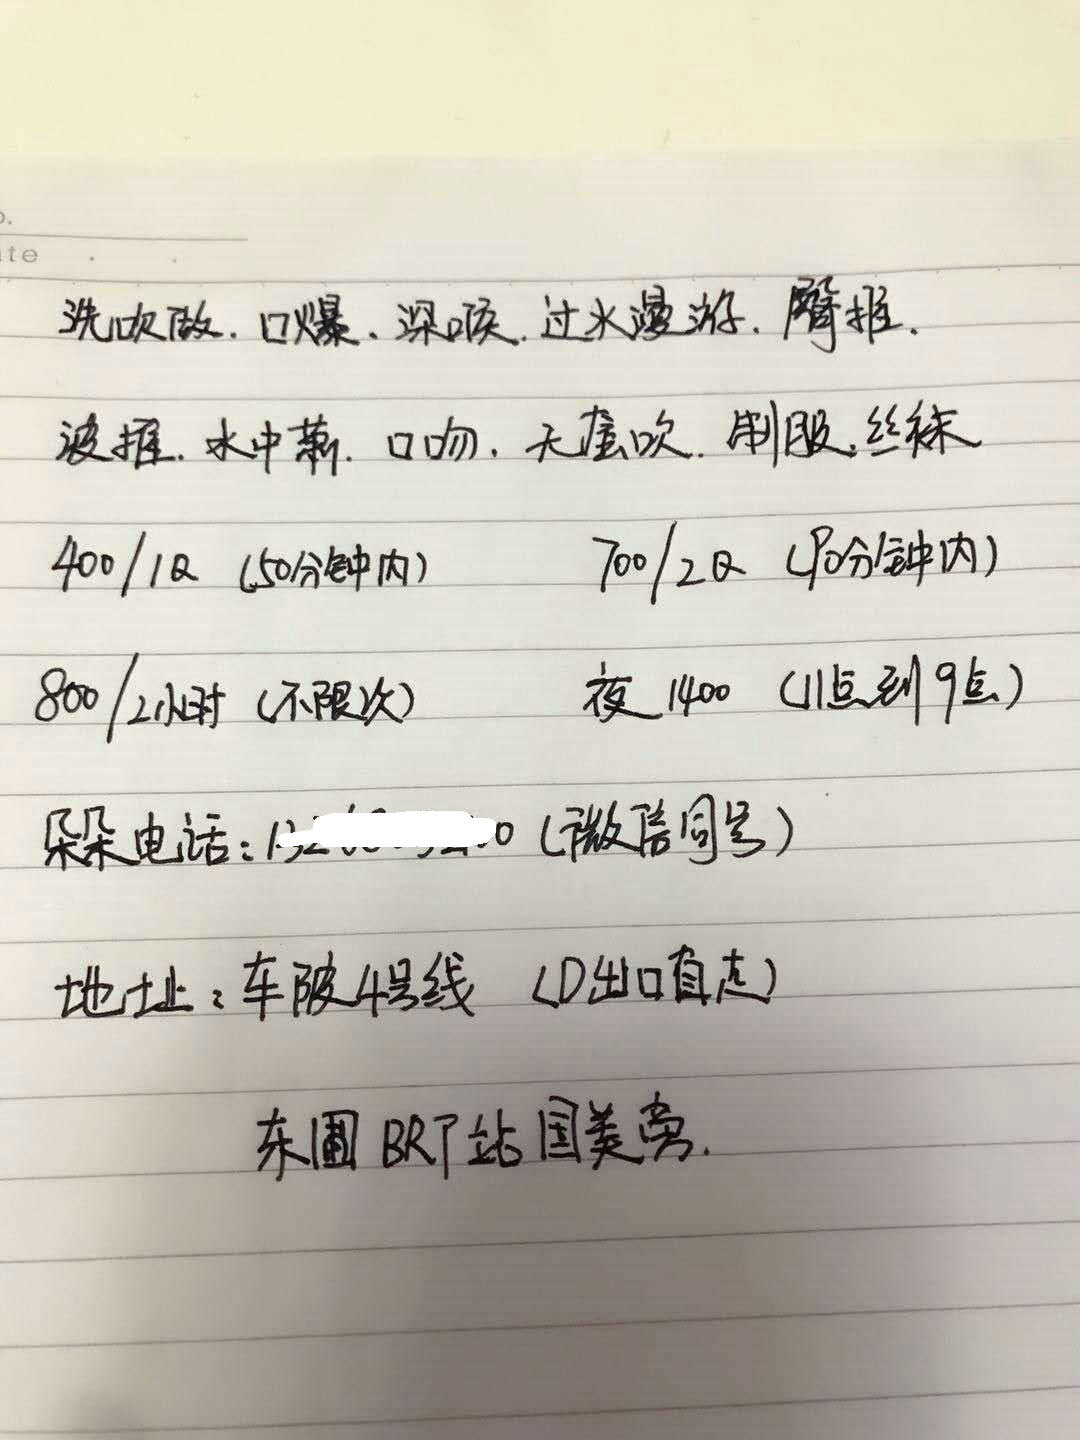 o.
ate
洗吹做.口爆.深喉.过水漫游.臀推.
波推.水中萧.口吻.无套吹.制服.丝袜
400/1Q (50分钟内) 700/2Q (90分钟内)
800/2小时 (不限次) 夜 1400 (11点到9点)
朵朵电话: (微信同号)
地址:车陂4号线 (D出口直走)
东圃 BRT站国美旁.